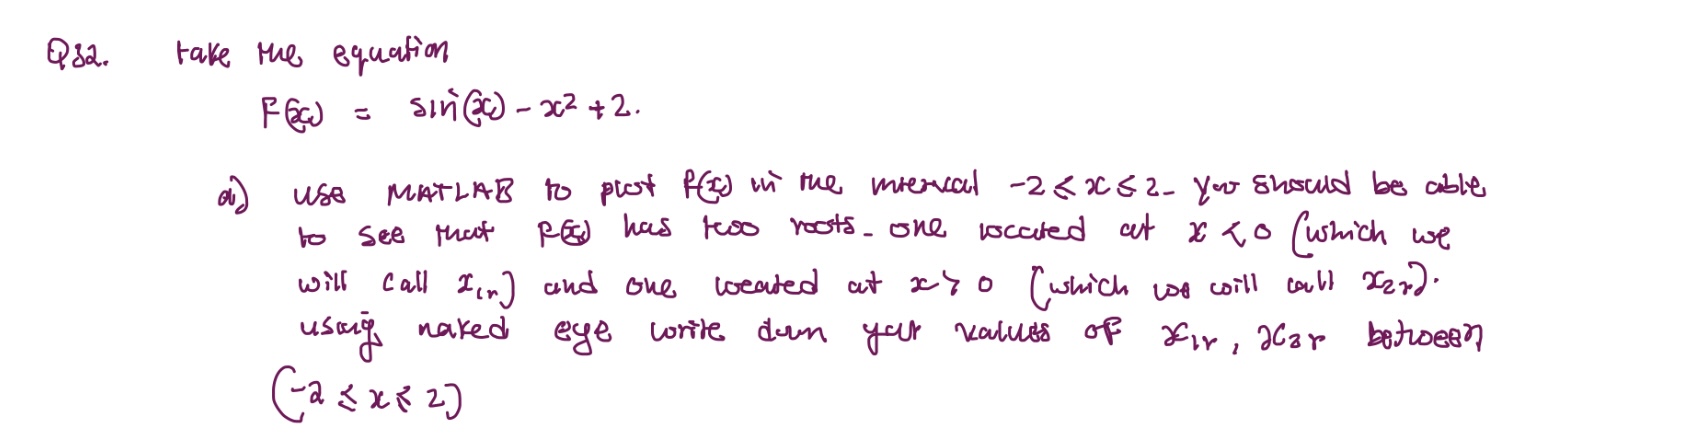 Q32. take the equation
F(x) = sin(x) - x² + 2.
a) use MATLAB to plot f(x) in the interval -2 ≤ x ≤ 2. you should be able
to see that F(x) has two roots. one located at x < 0 (which we
will call x₁ᵣ) and one located at x > 0 (which we will call x₂ᵣ).
using naked eye write down your values of x₁ᵣ, x₂ᵣ between
(-2 ≤ x ≤ 2)